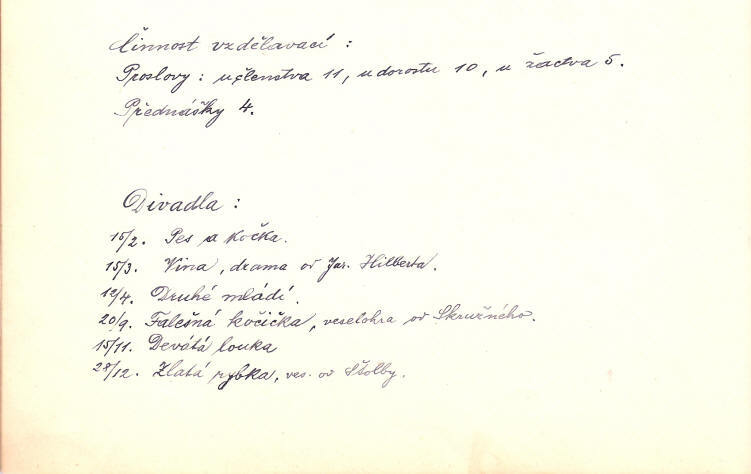 Činnost vzdělavací :
Proslovy : u členstva 11, u dorostu 10, u žactva 5.
Přednášky 4.
Divadla :
15/2. Pes a kočka.
15/3. Vina, drama od Jar. Hilberta.
12/4. Druhé mládí.
20/9. Falešná kočička, veselohra od Skružného.
15/11. Devátá louka
28/12. Zlatá rybka, ves. od Štolby.